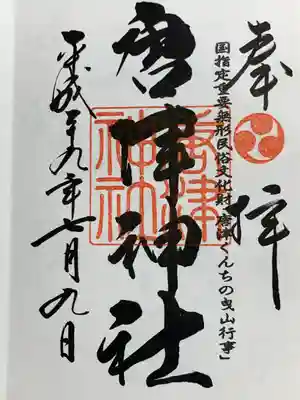 奉拝
国指定重要無形民俗文化財「唐津くんちの曳山行事」
唐津神社
唐津神社
平成二十九年七月九日